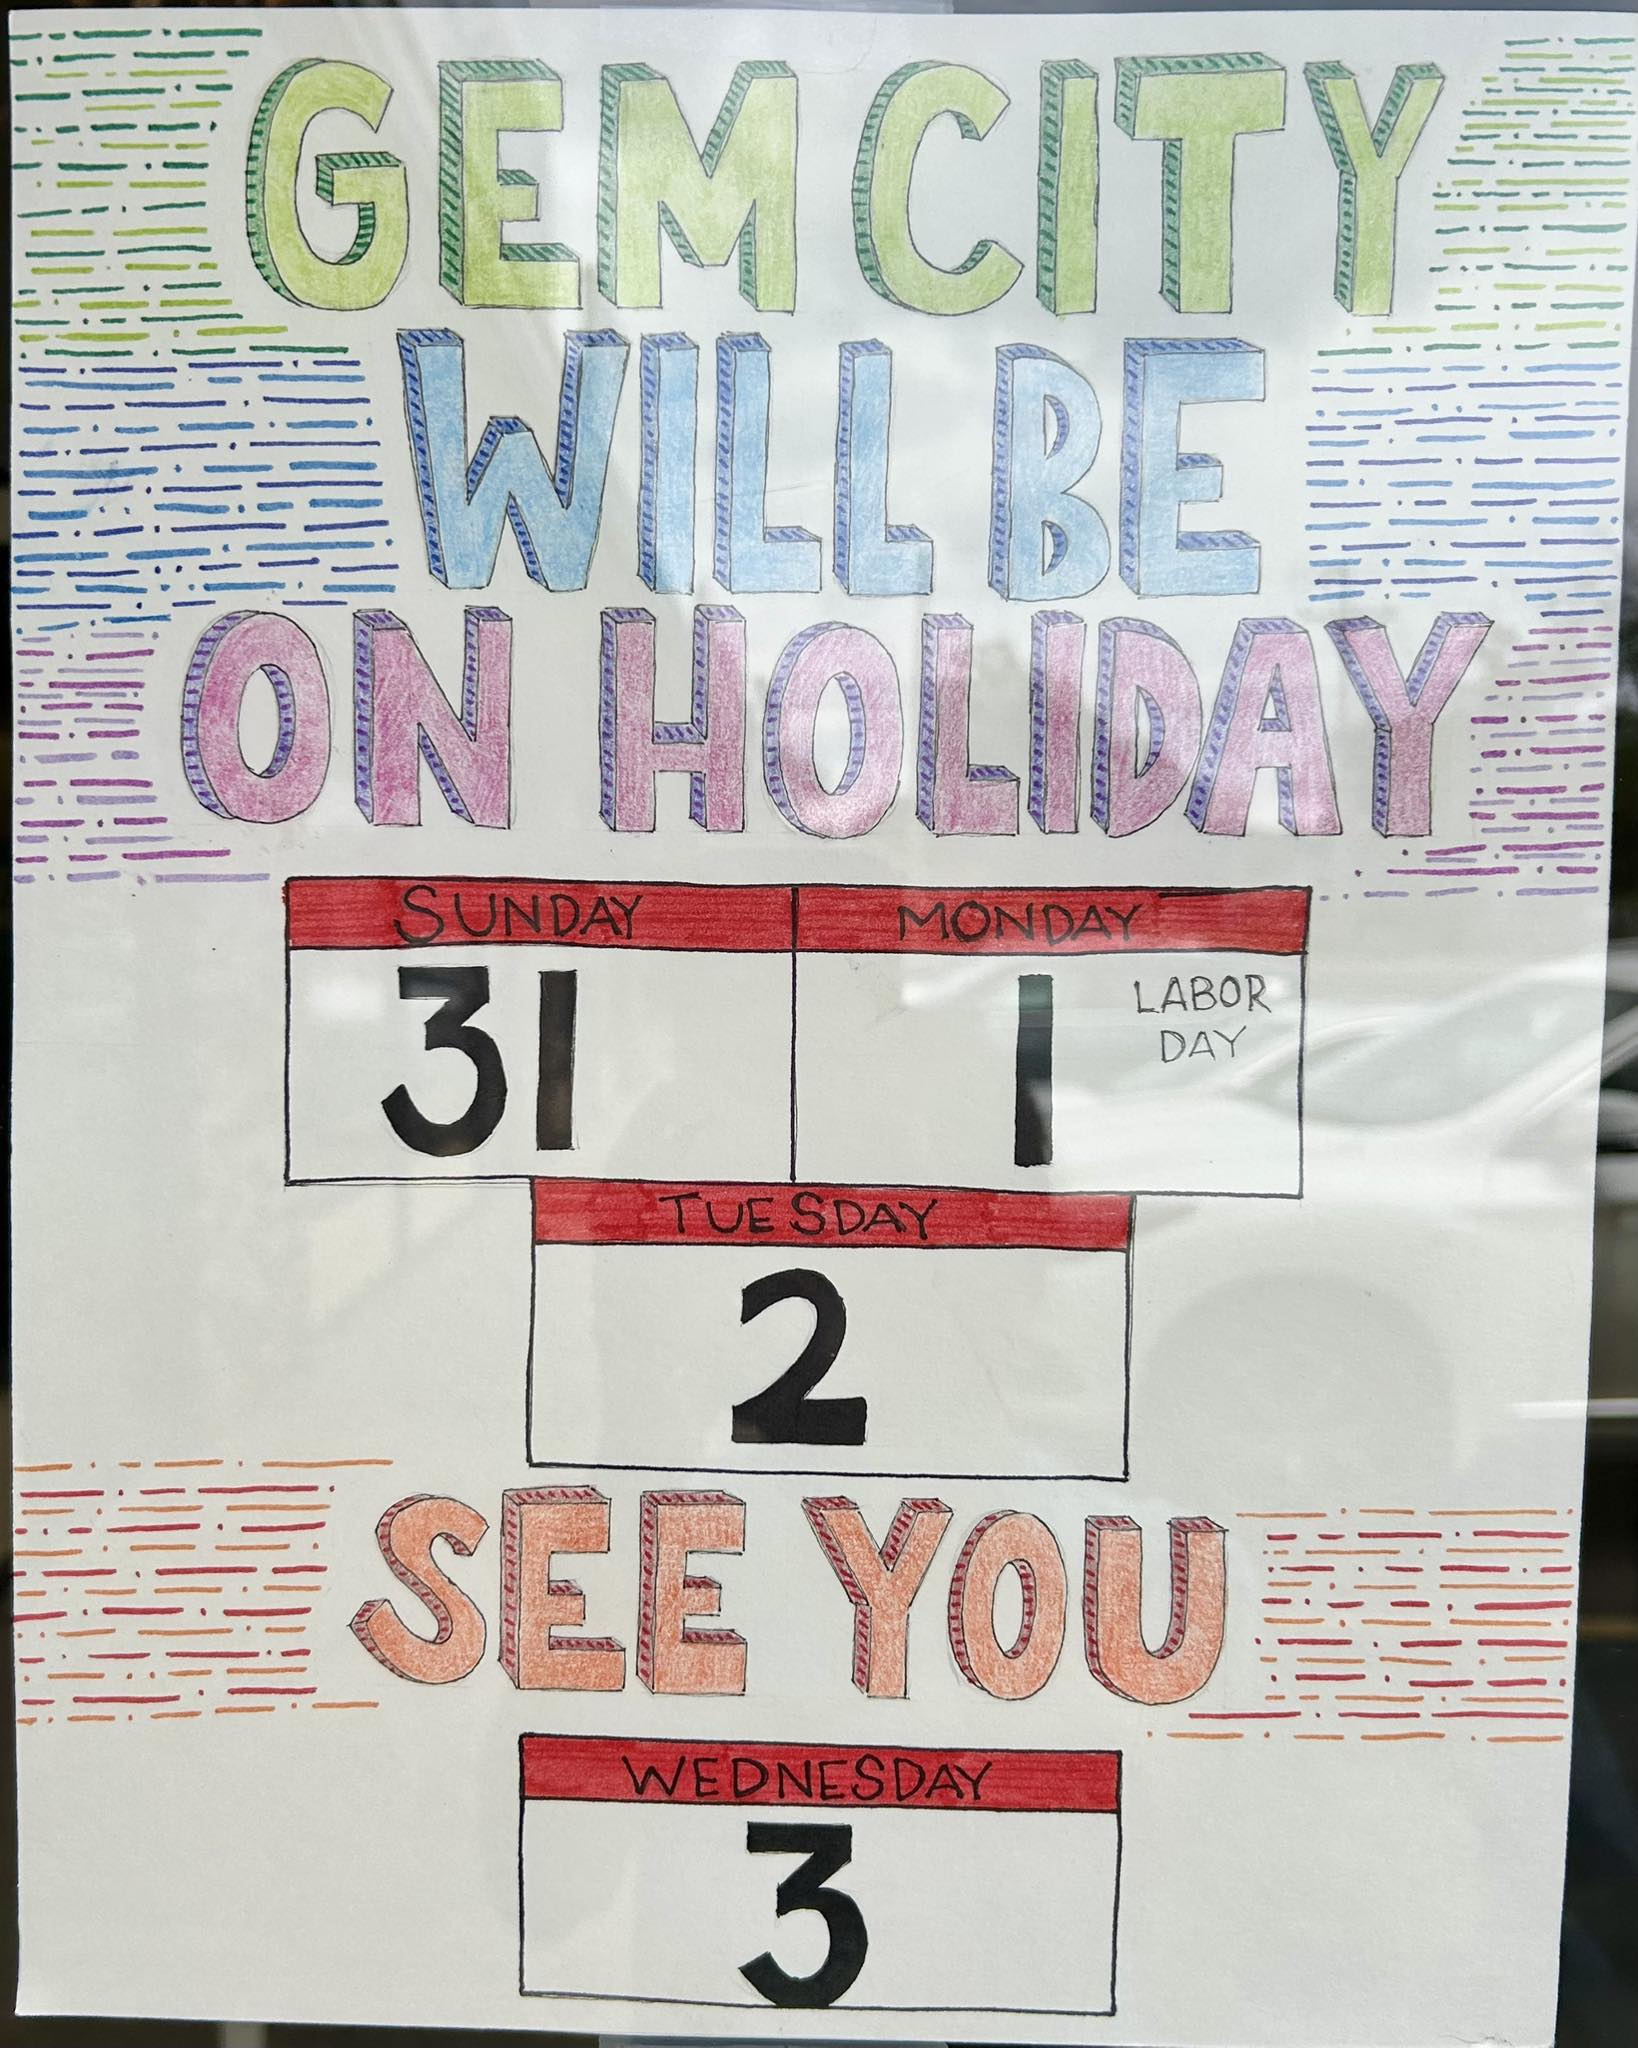 GEM CITY
WILL BE
ON HOLIDAY
SUNDAY MONDAY
31 1 LABOR
DAY
TUESDAY
2
SEE YOU
WEDNESDAY
3